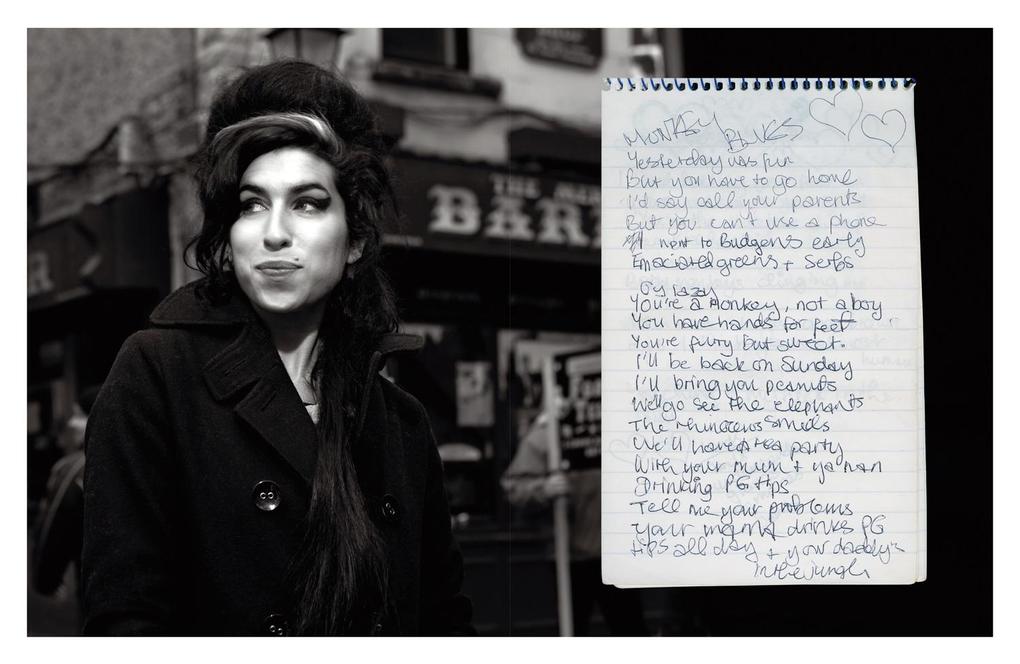 THE
BAR
MONKEY
BLUES
Yesterday was fun
But you have to go home
I'd say call your parents
But you can't use a phone
went to Budgens early
Emaciated greens + Serbs
You're a Monkey, not a boy
You have hands for feet
You're furry but sweet.
I'll be back on Sunday
I'll bring you peanuts
We'll go see the elephants
The rhinoceros smells
We'll have a tea party
With your mum + ya nan
Drinking PG tips
Tell me your problems
Your mama drinks PG
tips all day + your daddy's
in the jungle